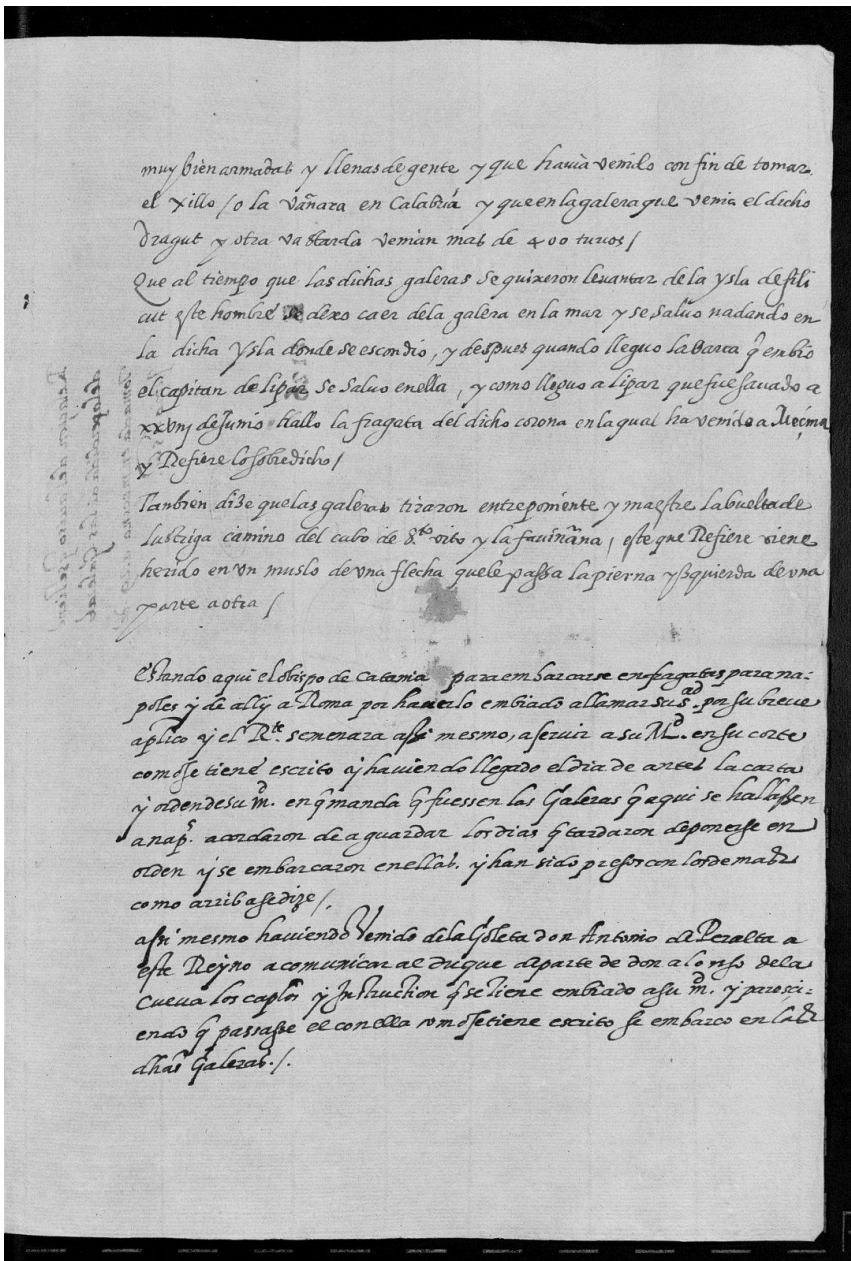 muy bien armadas y llenas de gente y que havia venido con fin de tomar
el xillo / o la vañara en Calabria y que en la galera que venia el dicho
Dragut y otra vastarda venian mas de 400 turcos /
Que al tiempo que las dichas galeras se quixeron levantar de la ysla de fili
cut este hombre se dexo caer dela galera en la mar y se salvo nadando en
la dicha ysla donde se escondio, y despues quando lleguo la barca q̃ embio
el capitan de lipar se salvo en ella, y como lleguo a lipar que fue savado a
xxviij de Junio hallo la fragata del dicho corona en la qual ha venido a Meçina
y Refiere lo sobredicho /
Tanbien dize que las galeras tiraron entre poniente y maestre la buelta de
lustriga camino del cabo de S.to vito y la faviñana, este que Refiere viene
herido en un muslo de una flecha que le passa la pierna yzquierda de una
parte a otra /
Estando aqui el obispo de Catania para embarcarse en fragatas para na-
poles y de ally a Roma por haverlo embiado a llamar su S.ad por su breve
ap̃lico y el R.te semenara assi mesmo, a servir a su M.d en su corte
como se tiene escrito y haviendo llegado el dia de antes la carta
y orden de su m.d en q̃ manda q̃ fuessen las Galeras q̃ aqui se hallassen
a nap.s acordaron de aguardar los dias q̃ tardaron de ponerse en
orden y se embarcaron en ellas. y han sido presos con los demas
como arriba se dize /.
assi mesmo haviendo venido de la Goleta don Antonio de Peralta a
este Reyno a comunicar al duque de parte de don alonso dela
Cueva los cap̃los y Instruction q̃ se tiene embiado a su m.d y paresci-
endo q̃ passasse el con ella como se tiene escrito se embarco en las
dhas Galeras. /.